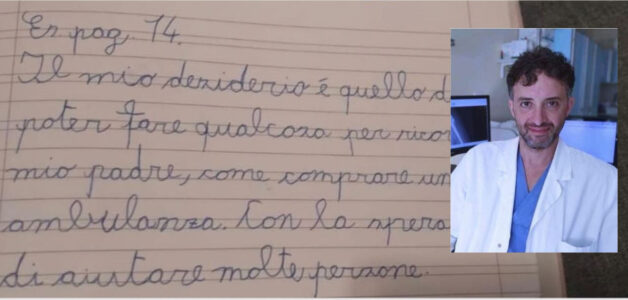 Es pag. 14.
Il mio desiderio é quello d
poter fare qualcosa per rico
mio padre, come comprare un
ambulanza. Con la spera
di aiutare molte persone.